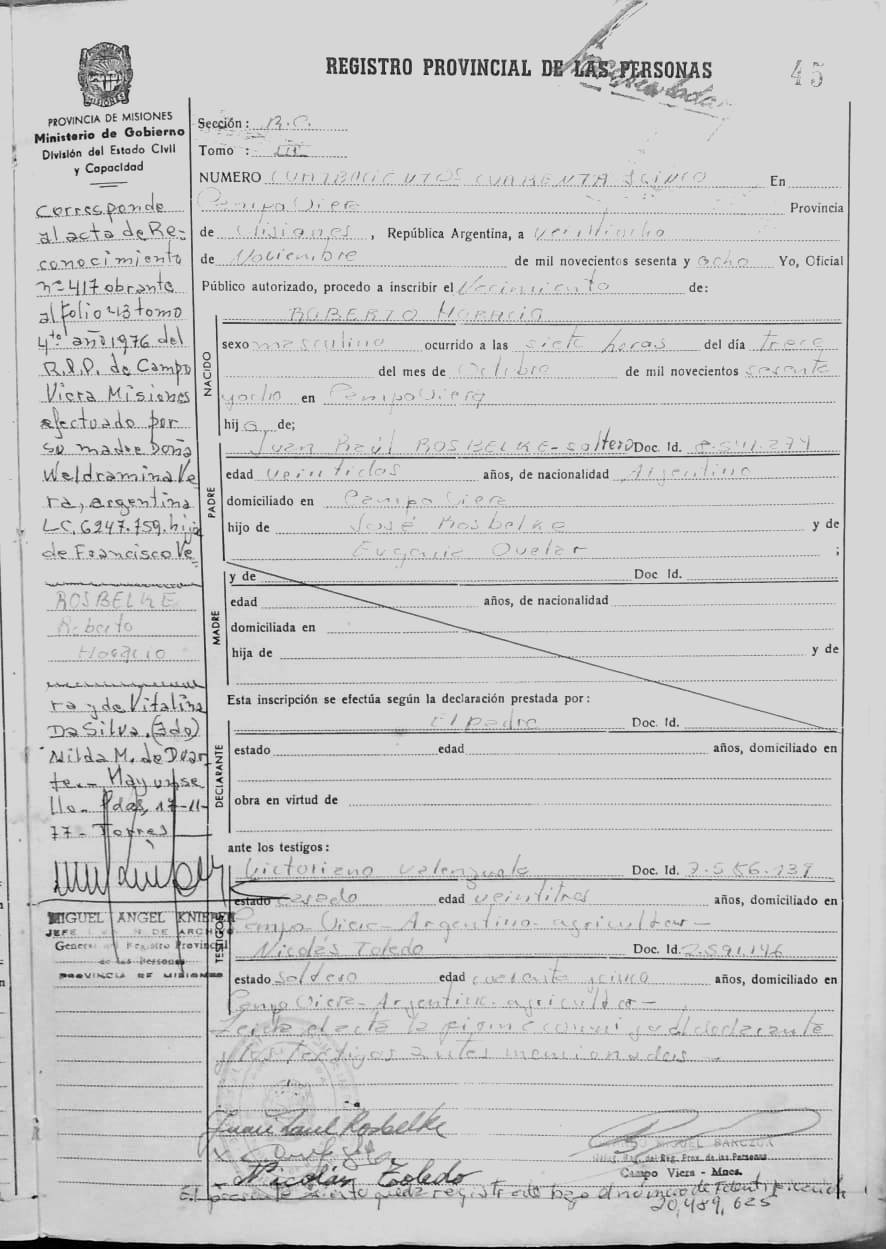 REGISTRO PROVINCIAL DE LAS PERSONAS
45
PROVINCIA DE MISIONES
Ministerio de Gobierno
División del Estado Civil
y Capacidad
Corresponde
al acta de Re-
conocimiento
nº 417 obrante
al folio 43 tomo
4to año 1976 del
R.P.P. de Campo
Viera Misiones
efectuado por
su madre Doña
Weldramina Ve
ra, argentina
LC. 6247.759. hija
de Francisco Ve
ROSBELKE
Roberto
Horacio
ra y de Vitalina
Da Silva. (Fdo)
Nilda M. de Duar
te.- Hay un se
llo. Pdas, 17-11-
77 - Torres
MIGUEL ANGEL KNIEPER
JEFE DE ARCHIVO
General del Registro Provincial
de las Personas
PROVINCIA DE MISIONES
Sección: B.C.
Tomo: III
NUMERO CUATROCIENTOS CUARENTA YCINCO En
Campo Viera Provincia
de Misiones, República Argentina, a veintiocho
de Noviembre de mil novecientos sesenta y ocho Yo, Oficial
Público autorizado, procedo a inscribir el Nacimiento de:
NACIDO
ROBERTO HORACIO
sexo masculino ocurrido a las siete horas del día trece
del mes de Octubre de mil novecientos sesenta
yocho en Campo Viera
hijo de;
PADRE
Juan Raúl ROSBELKE - soltero Doc. Id. 8.541.274
edad veintidos años, de nacionalidad Argentino
domiciliado en Campo Viera
hijo de José Rosbelke y de
Eugenia ;
MADRE
y de Doc. Id.
edad años, de nacionalidad
domiciliada en
hija de y de
Esta inscripción se efectúa según la declaración prestada por:
DECLARANTE
El padre Doc. Id.
estado edad años, domiciliado en
obra en virtud de
ante los testigos:
TESTIGOS
Victoriano Valenzuela Doc. Id. 7.556.139
estado casado edad veintitres años, domiciliado en
Campo Viera - Argentino - agricultor -
Nicolás Toledo Doc. Id. 2.591.146
estado soltero edad cuarenta ycinco años, domiciliado en
Campo Viera - Argentino - agricultor -
Leida el acta la firma conmigo el declarante
y los testigos antes mencionados -
Juan Raul Rosbelke
Nicolás Toledo
BARCZUK
del Reg. Prov. de las Personas
Campo Viera - Mnes.
El presente asiento queda registrado bajo el número de Identificación
20,489,625